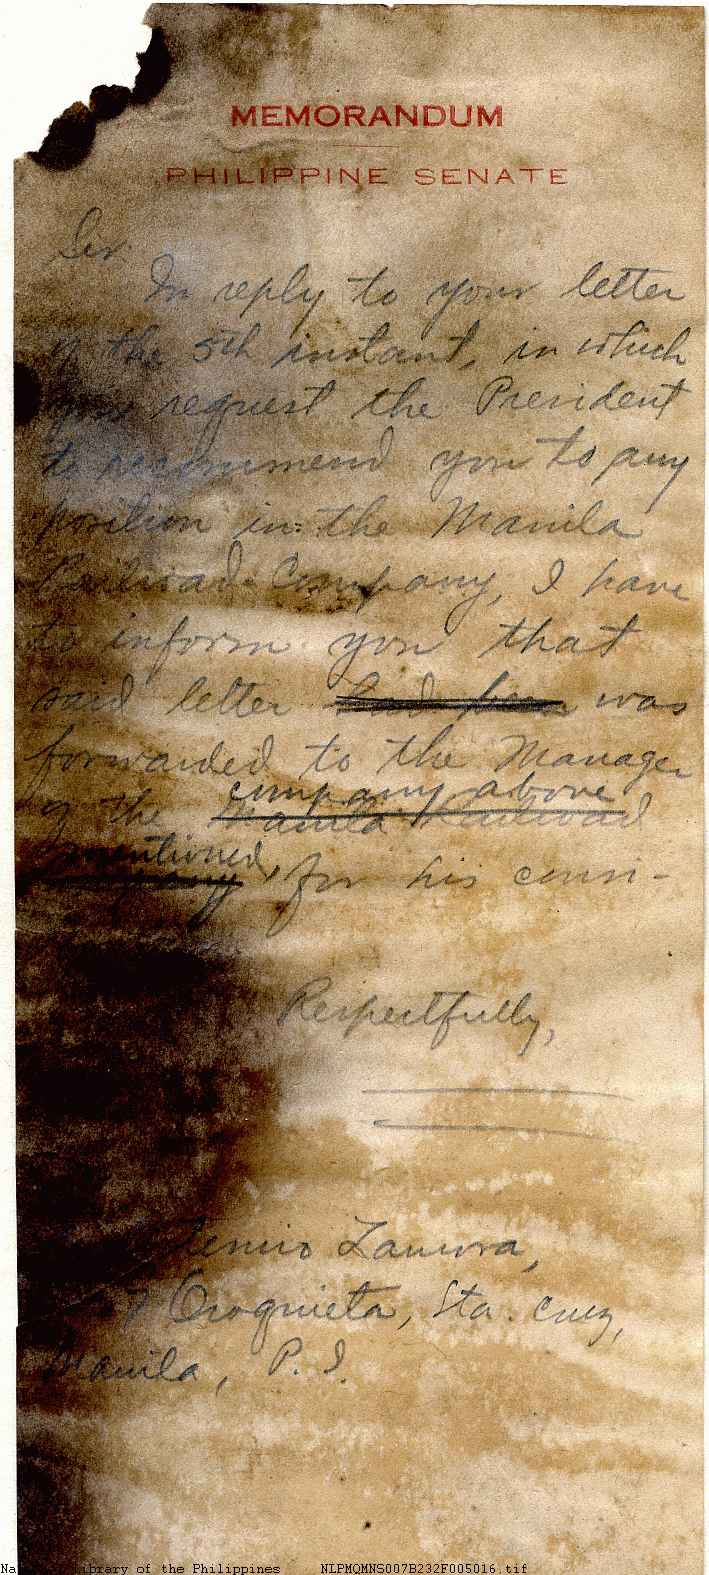 MEMORANDUM
PHILIPPINE SENATE
Sir:
In reply to your letter
of the 5th instant, in which
you request the President
to recommend you to any
position in the Manila
Railroad Company, I have
to inform you that
said letter had been was
forwarded to the Manager
company above
of the Manila Railroad
mentioned,
Company for his consi-
Respectfully,
temio Zamora,
7 Oroquieta, Sta. Cruz,
Manila, P. I.
National Library of the Philippines NLPMQMNS007B232F005016.tif